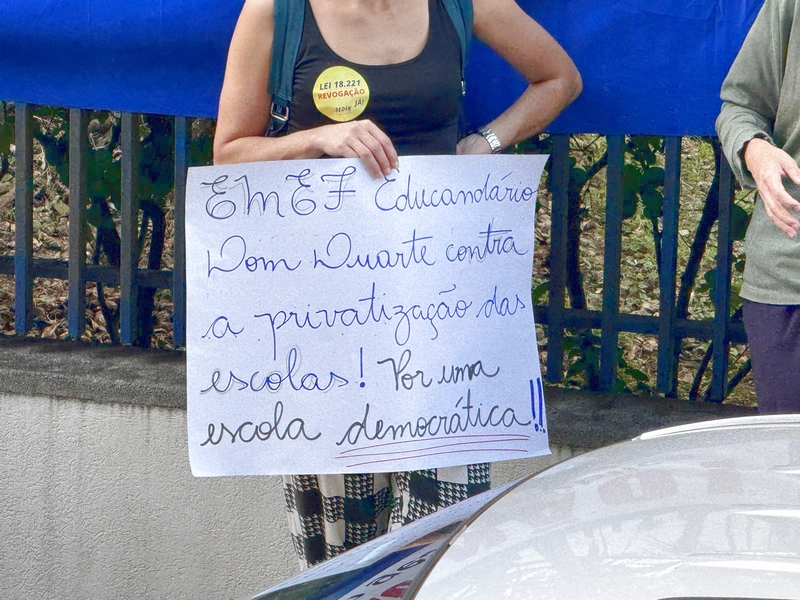 LEI 18.221
REVOGAÇÃO
JÁ!
SEDIN
EMEF Educandário
Dom Duarte contra
a privatização das
escolas! Por uma
escola democrática!!